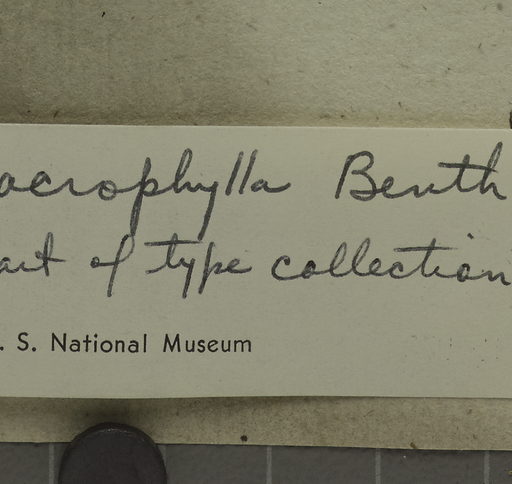 acrophylla Benth
art of type collection
. S. National Museum